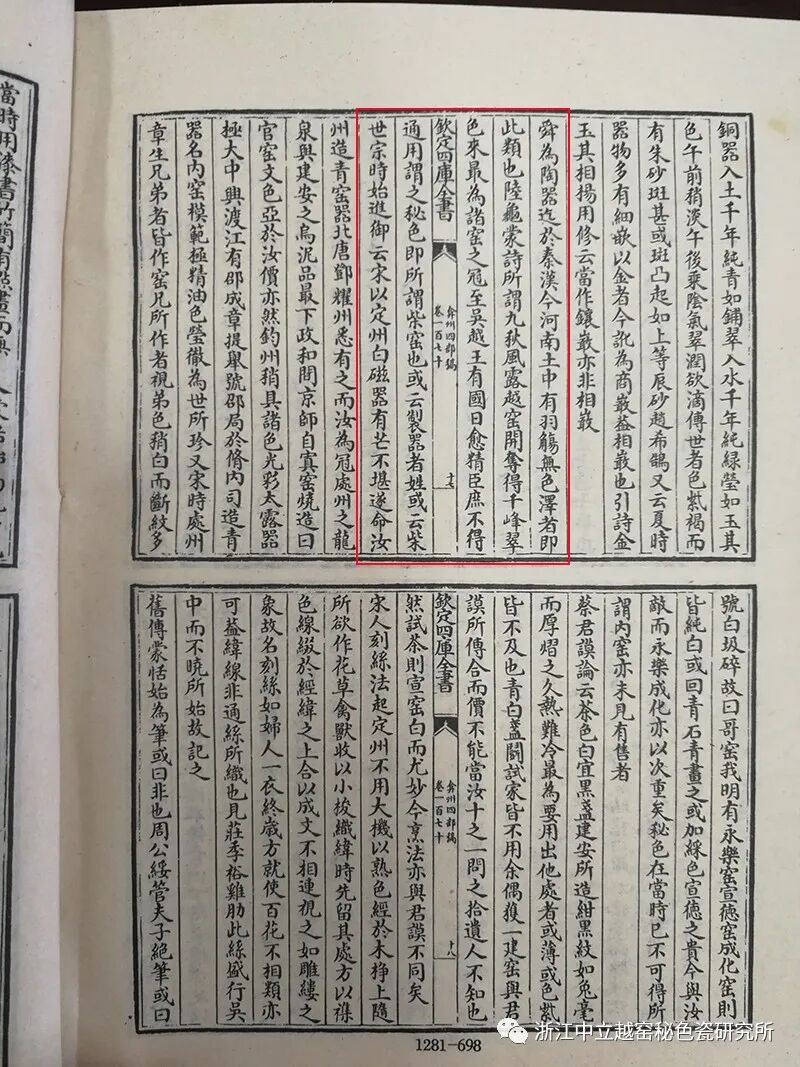 銅器入土千年純青如鋪翠入水千年純緑瑩如玉其
色午前稍淡午後乗陰氣翠潤欲滴傳世者色紫褐而
有朱砂斑甚或斑凸起如上等辰砂趙希鵠又云夏時
器物多有細嵌以金者今訛為商嵌葢相嵌也引詩金
玉其相楊用修云當作鑲嵌亦非相嵌
舜為陶器迄於秦漢今河南土中有羽觴無色澤者即
此類也陸龜蒙詩所謂九秋風露越窑開奪得千峰翠
色來最為諸窑之冠至吳越王有國日愈精臣庶不得
欽定四庫全書
弇州四部稿
卷一百七十
十七
通用謂之秘色即所謂柴窑也或云製器者姓或云柴
世宗時始進御云宋以定州白磁器有芒不堪遂命汝
州造青窑器北唐鄧耀州悉有之而汝為冠處州之龍
泉與建安之烏泥品最下政和間京師自寘窑燒造曰
官窑文色亞於汝價亦然鈞州稍具諸色光彩太露器
極大中興渡江有邵成章提舉號邵局於脩内司造青
器名内窑模範極精油色瑩徹為世所珍又宋時處州
章生兄弟者皆作窑兄所作者視弟色稍白而斷紋多
號白圾碎故曰哥窑我明有永樂窑宣德窑成化窑則
皆純白或回青石青畫之或加綵色宣德之貴今與汝
敵而永樂成化亦以次重矣秘色在當時已不可得所
謂内窑亦未見有售者
蔡君謨論云茶色白宜黑盞建安所造紺黒紋如兔毫
而厚熁之久熱難冷最為要用出他處者或薄或色紫
皆不及也青白盞鬭試家皆不用余偶獲一建窑與君
謨所傳合而價不能當汝十之一問之拾遺人不知也
欽定四庫全書
弇州四部稿
卷一百七十
十八
然試茶則宣窑白而尤妙今烹法亦與君謨不同矣
宋人刻絲法起定州不用大機以熟色經於木挣上隨
所欲作花草禽獸收以小梭織緯時先留其處方以雜
色線綴於經緯之上合以成文不相連視之如雕鏤之
象故名刻絲如婦人一衣終歲方就使百花不相類亦
可葢緯線非通絲所織也見莊季裕雞肋此絲盛行吳
中而不曉所始故記之
舊傳蒙恬始為筆或曰非也周公綏管夫子絶筆或曰
1281-698
浙江中立越窑秘色瓷研究所